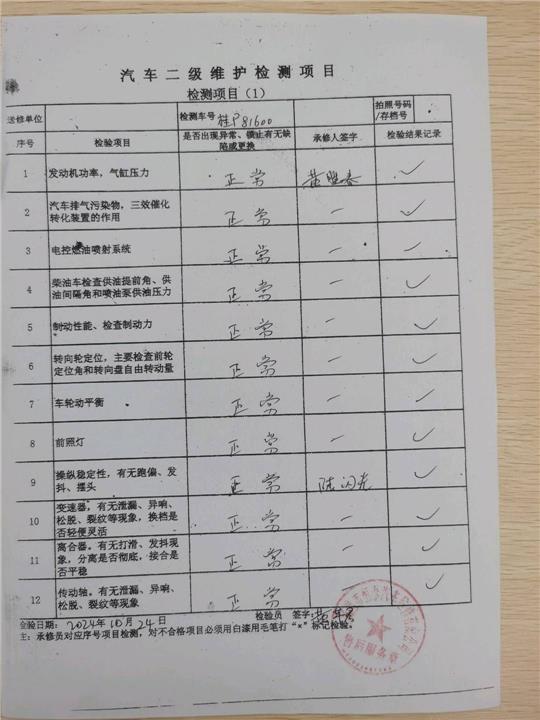 汽车二级维护检测项目
检测项目（1）
送修单位 检测车号 桂P81600 拍照号码/存档号
序号 检验项目 是否出现异常、锁止有无缺陷或更换 承修人签字 检验结果记录
1 发动机功率，气缸压力 正常 ✓
2 汽车排气污染物，三效催化转化装置的作用 正常 一 ✓
3 电控燃油喷射系统 正常 一 ✓
4 柴油车检查供油提前角、供油间隔角和喷油泵供油压力 正常 一 ✓
5 制动性能、检查制动力 正常 一 ✓
6 转向轮定位，主要检查前轮定位角和转向盘自由转动量 正常 一 ✓
7 车轮动平衡 正常 一 ✓
8 前照灯 正常 一 ✓
9 操纵稳定性，有无跑偏、发抖、摆头 正常 ✓
10 变速器，有无泄漏、异响、松脱、裂纹等现象，换档是否轻便灵活 正常 一 ✓
11 离合器。有无打滑、发抖现象，分离是否彻底，接合是否平稳 正常 一 ✓
12 传动轴。有无泄漏、异响、松脱、裂纹等现象 正常 一 ✓
检验日期：2024年10月24日 检验员 签字：
主：承修员对应序号项目检测，对不合格项目必须用白漆用毛笔打“×”标记检验。